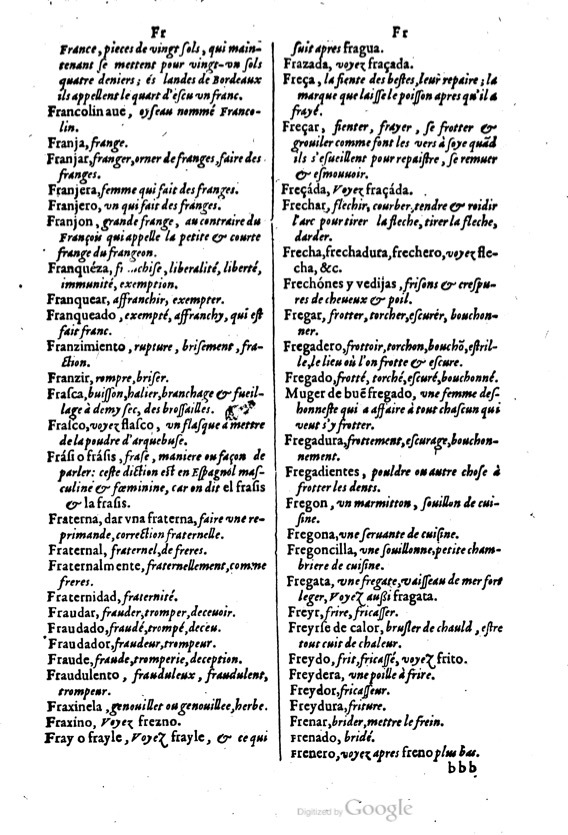 Fr
France, pieces de vingt sols, qui main-
tenant se mettent pour vingt-vn sols
quatre deniers; és landes de Bordeaux
ils appellent le quart d'escu vn franc.
Francolin aue, oyseau nommé Franco-
lin.
Franja, frange.
Franjar, franger, orner de franges, faire des
franges.
Franjera, femme qui fait des franges.
Franjero, vn qui fait des franges.
Franjon, grande frange, au contraire du
François qui appelle la petite & courte
frange du frangeon.
Franquéza, liberalité, liberté,
immunité, exemption.
Franquear, affranchir, exempter.
Franqueado, exempté, affranchy, qui est
fait franc.
Franzimiento, rupture, brisement, fra-
ction.
Franzir, rompre, briser.
Frasca, buisson, halier, branchage & fueil-
lage à demy sec, des brossailles.
Frasco, voyez flasco, vn flasque à mettre
de la poudre d'arquebuse.
Frásis o frásis, frase, maniere ou façon de
parler: ceste diction est en Espagnol mas-
culine & fœminine, car on dit el frasis
& la frasis.
Fraterna, dar vna fraterna, faire vne re-
primande, correction fraternelle.
Fraternal, fraternel, de freres.
Fraternalmente, fraternellement, comme
freres.
Fraternidad, fraternité.
Fraudar, frauder, tromper, deceuoir.
Fraudado, fraudé, trompé, deceu.
Fraudador, fraudeur, trompeur.
Fraude, fraude, tromperie, deception.
Fraudulento, frauduleux, fraudulent,
trompeur.
Fraxinela, genouillet ou genouillee, herbe.
Fraxino, Voyez frezno.
Fray o frayle, Voyez frayle, & ce qui
Fr
suit apres fragua.
Frazada, voyez fraçada.
Freça, la fiente des bestes, leur repaire; la
marque que laisse le poisson apres qu'il a
frayé.
Freçar, fienter, frayer, se frotter &
grouiler comme font les vers à soye quād
ils s'esueillent pour repaistre, se remuer
& esmouuoir.
Freçáda, Voyez fraçáda.
Frechar, flechir, courber, tendre & roidir
l'arc pour tirer la fleche, tirer la fleche,
darder.
Frecha, frechadura, frechero, voyez fle-
cha, &c.
Frechónes y vedijas, frisons & crespu-
res de cheueux & poil.
Fregar, frotter, torcher, escurér, bouchon-
ner.
Fregadero, frottoir, torchon, bouchō, estril-
le, le lieu où l'on frotte & escure.
Fregado, frotté, torché, escuré, bouchonné.
Muger de buē fregado, vne femme des-
honneste qui a affaire à tout chascun qui
veut s'y frotter.
Fregadura, frottement, escurage, bouchon-
nement.
Fregadientes, pouldre ou autre chose à
frotter les dents.
Fregon, vn marmitton, souillon de cui-
sine.
Fregona, vne seruante de cuisine.
Fregoncilla, vne souillonne, petite cham-
briere de cuisine.
Fregata, vne fregate, vaisseau de mer fort
leger, Voyez aussi fragata.
Freyr, frire, fricasser.
Freyrse de calor, brusler de chauld, estre
tout cuit de chaleur.
Freydo, frit, fricassé, voyez frito.
Freydera, vne poille à frire.
Freydor, fricasseur.
Freydura, friture.
Frenar, brider, mettre le frein.
Frenado, bridé.
Frenero, voyez apres freno plus bas.
bbb
Digitized by Google